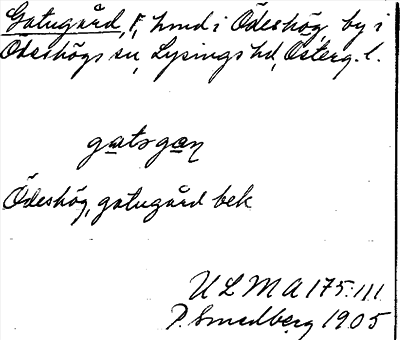 Gatugård, F, hmd i Ödeshög, by i
Ödeshögs sn, Lysings hd, Österg. l.
gatsgan
Ödeshög, gatugård bek
ULMA 175:111
P. Smedberg 1905